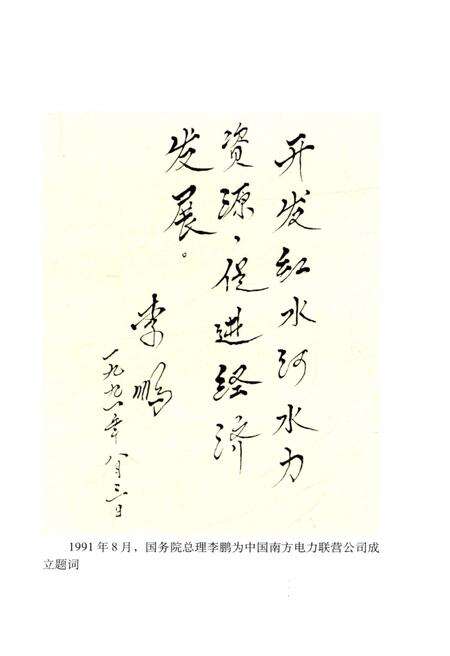 开发红水河水力
资源，促进经济
发展。
李鹏
一九九一年八月三日
1991年8月，国务院总理李鹏为中国南方电力联营公司成
立题词